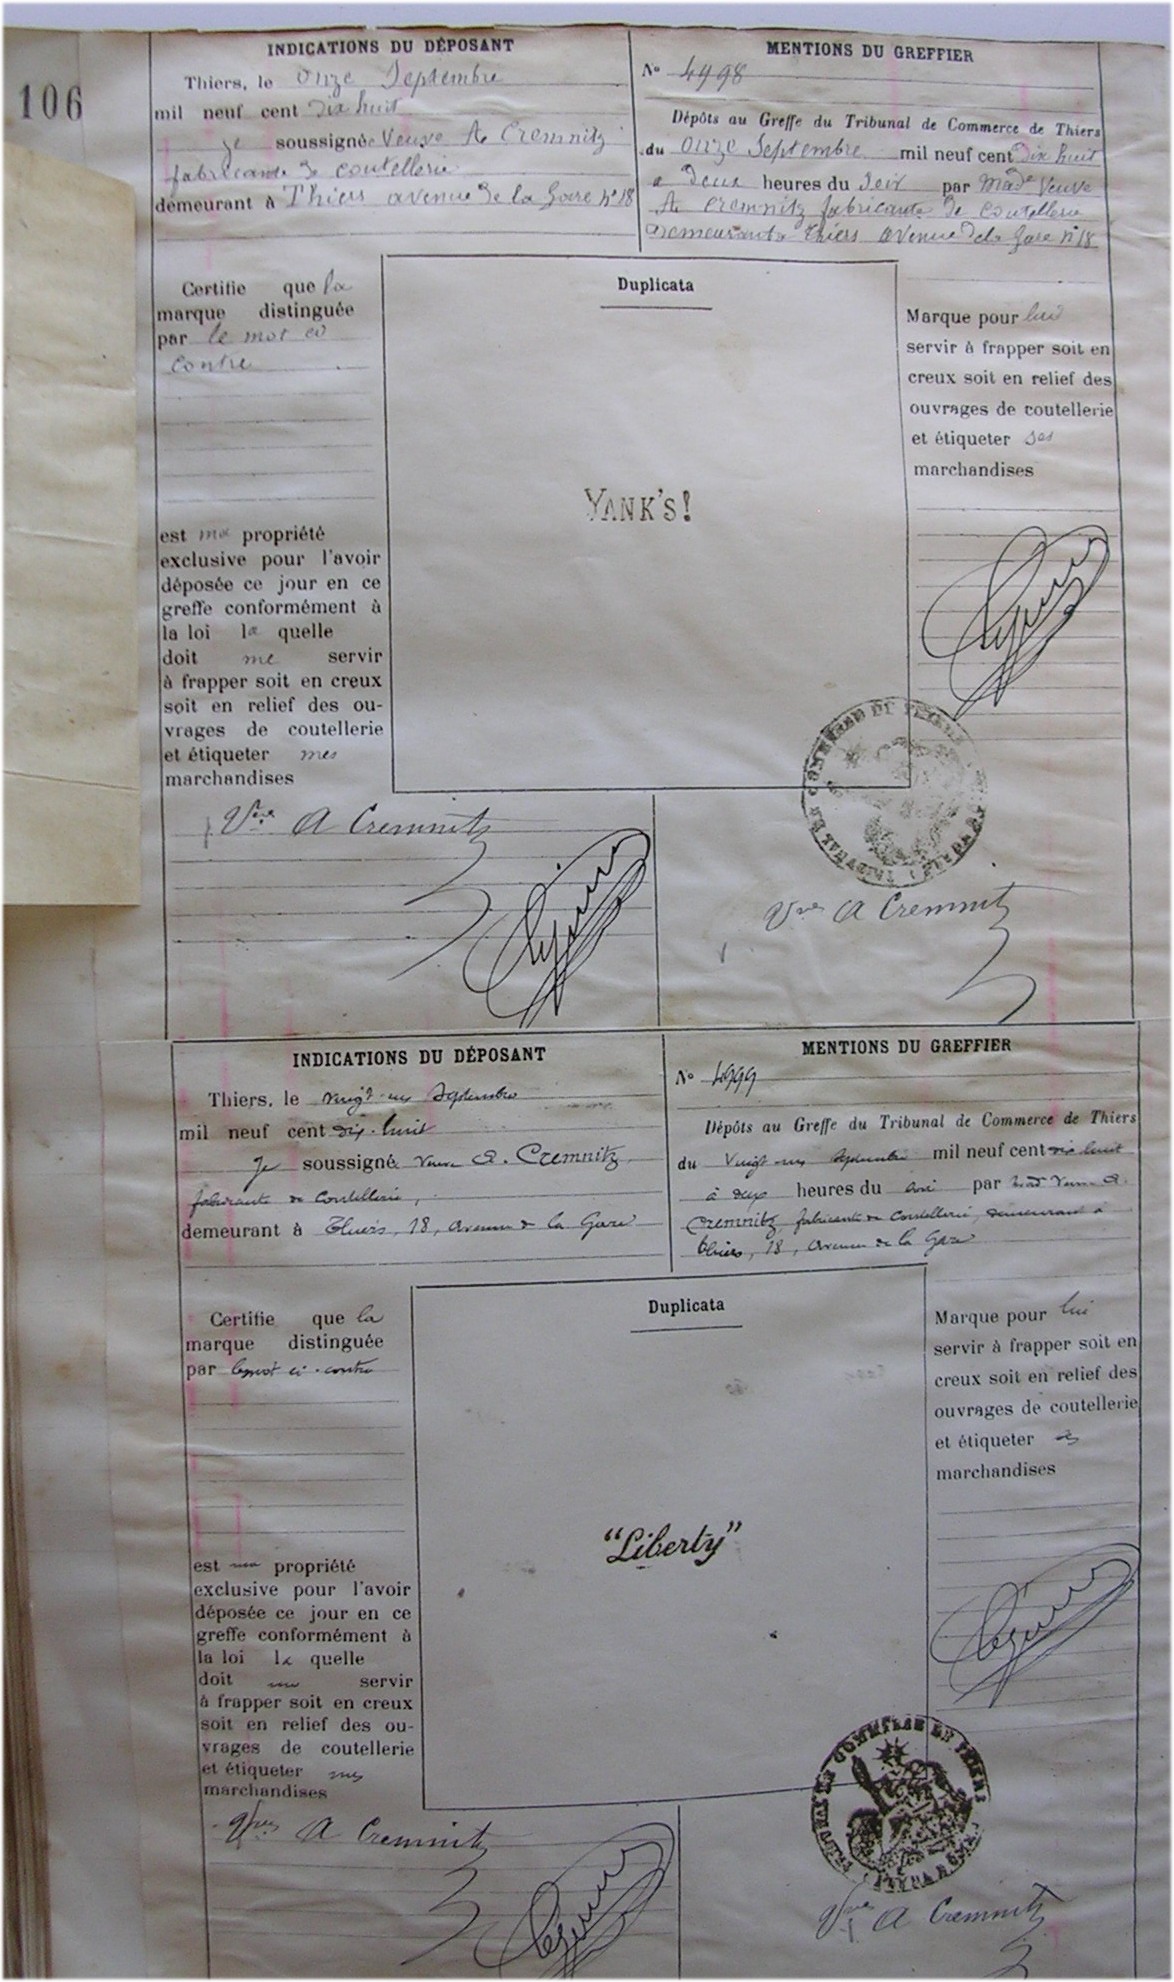 106
INDICATIONS DU DÉPOSANT
Thiers, le onze Septembre
mil neuf cent dix huit
je soussignée Veuve A Cremnitz
fabricante de coutellerie
demeurant à Thiers avenue de la Gare n° 18
MENTIONS DU GREFFIER
N° 4998
Dépôts au Greffe du Tribunal de Commerce de Thiers
du onze Septembre mil neuf cent dix huit
à deux heures du soir par Made Veuve
A Cremnitz fabricante de coutellerie
demeurant à Thiers avenue de la Gare n° 18
Certifie que la
marque distinguée
par le mot ci
contre
est ma propriété
exclusive pour l'avoir
déposée ce jour en ce
greffe conformément à
la loi la quelle
doit me servir
à frapper soit en creux
soit en relief des ou-
vrages de coutellerie
et étiqueter mes
marchandises
Duplicata
YANK'S!
Marque pour lui
servir à frapper soit en
creux soit en relief des
ouvrages de coutellerie
et étiqueter ses
marchandises
TRIBUNAL DE COMMERCE DE THIERS
Vve A Cremnitz
Vve A Cremnitz
INDICATIONS DU DÉPOSANT
Thiers, le vingt-un Septembre
mil neuf cent dix-huit
je soussigné Veuve A. Cremnitz
fabricante de Coutellerie,
demeurant à Thiers, 18, Avenue de la Gare
MENTIONS DU GREFFIER
N° 4999
Dépôts au Greffe du Tribunal de Commerce de Thiers
du Vingt-un Septembre mil neuf cent dix huit
à deux heures du soir par Mad Veuve A.
Cremnitz, fabricante de Coutellerie, demeurant à
Thiers, 18, Avenue de la Gare
Certifie que la
marque distinguée
par le mot ci-contre
est ma propriété
exclusive pour l'avoir
déposée ce jour en ce
greffe conformément à
la loi la quelle
doit me servir
à frapper soit en creux
soit en relief des ou-
vrages de coutellerie
et étiqueter mes
marchandises
Duplicata
"Liberty"
Marque pour lui
servir à frapper soit en
creux soit en relief des
ouvrages de coutellerie
et étiqueter ses
marchandises
TRIBUNAL DE COMMERCE DE THIERS
Vve A Cremnitz
Vve A Cremnitz